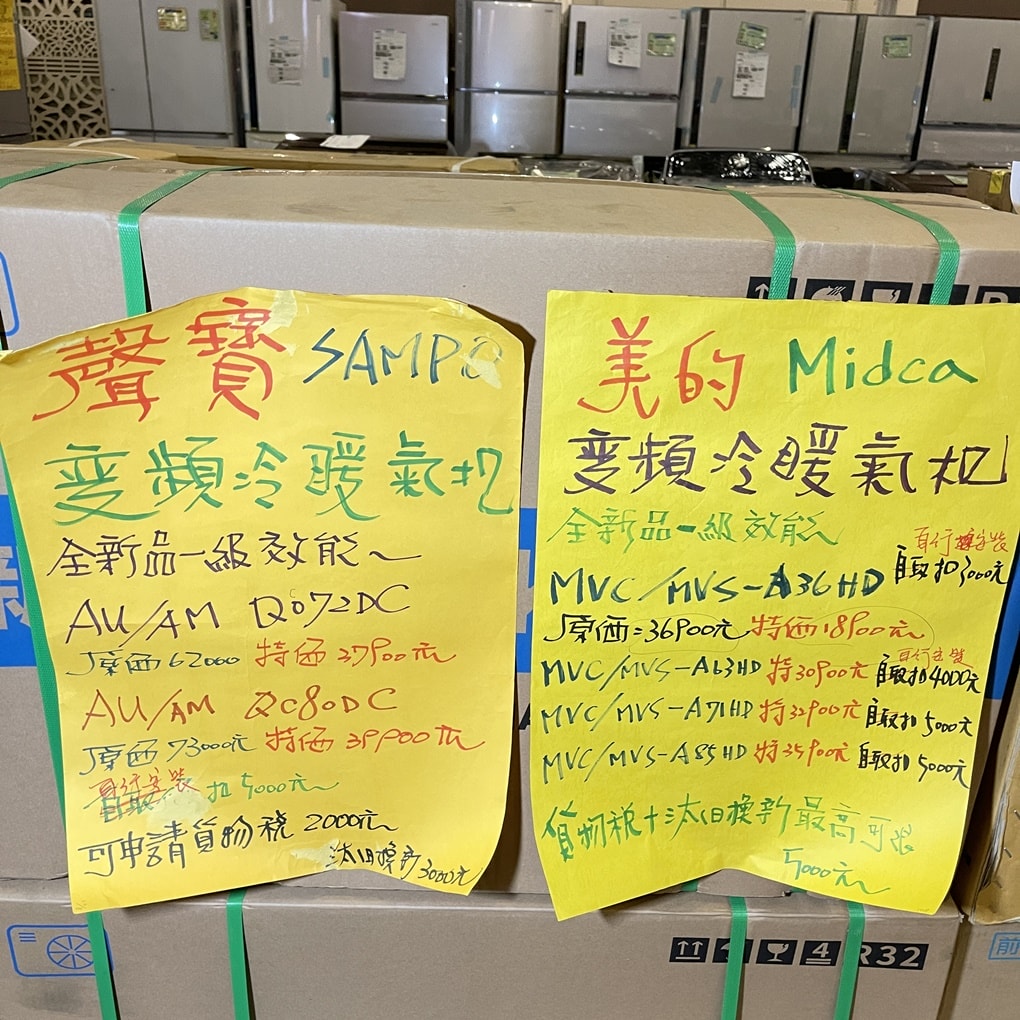 聲寶 SAMPO
變頻冷暖氣机
全新品一級效能
AU/AM QC72DC
原価62000 特価37900元
AU/AM QC80DC
原価73000元 特価39900元
自行安裝
自取 扣5000元
可申請貨物稅 2000元
汰旧換新 3000元
美的 Midca
変頻冷暖氣机
全新品一級效能
自行安裝
自取扣3000元
MVC/MVS-A36HD
原価=36900元 特価18900元
自行安裝
MVC/MVS-A63HD 特30900元 自取扣4000元
MVC/MVS-A71HD 特32900元 自取扣5000元
MVC/MVS-A85HD 特35900元 自取扣5000元
貨物稅+汰旧換新最高可退
5000元
4 R32
前